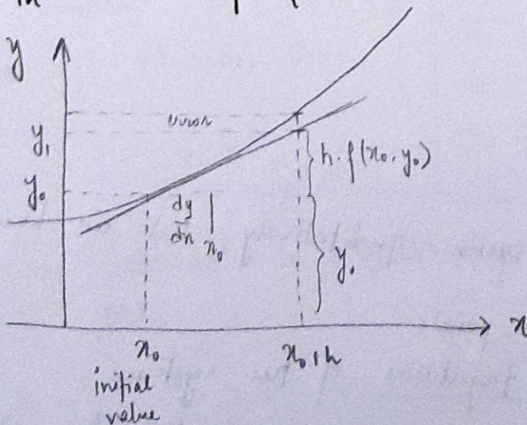 y
error
y₁
h.f(x₀,y₀)
y₀
dy/dx|x₀
y₀
x
x₀
x₀+h
initial
value